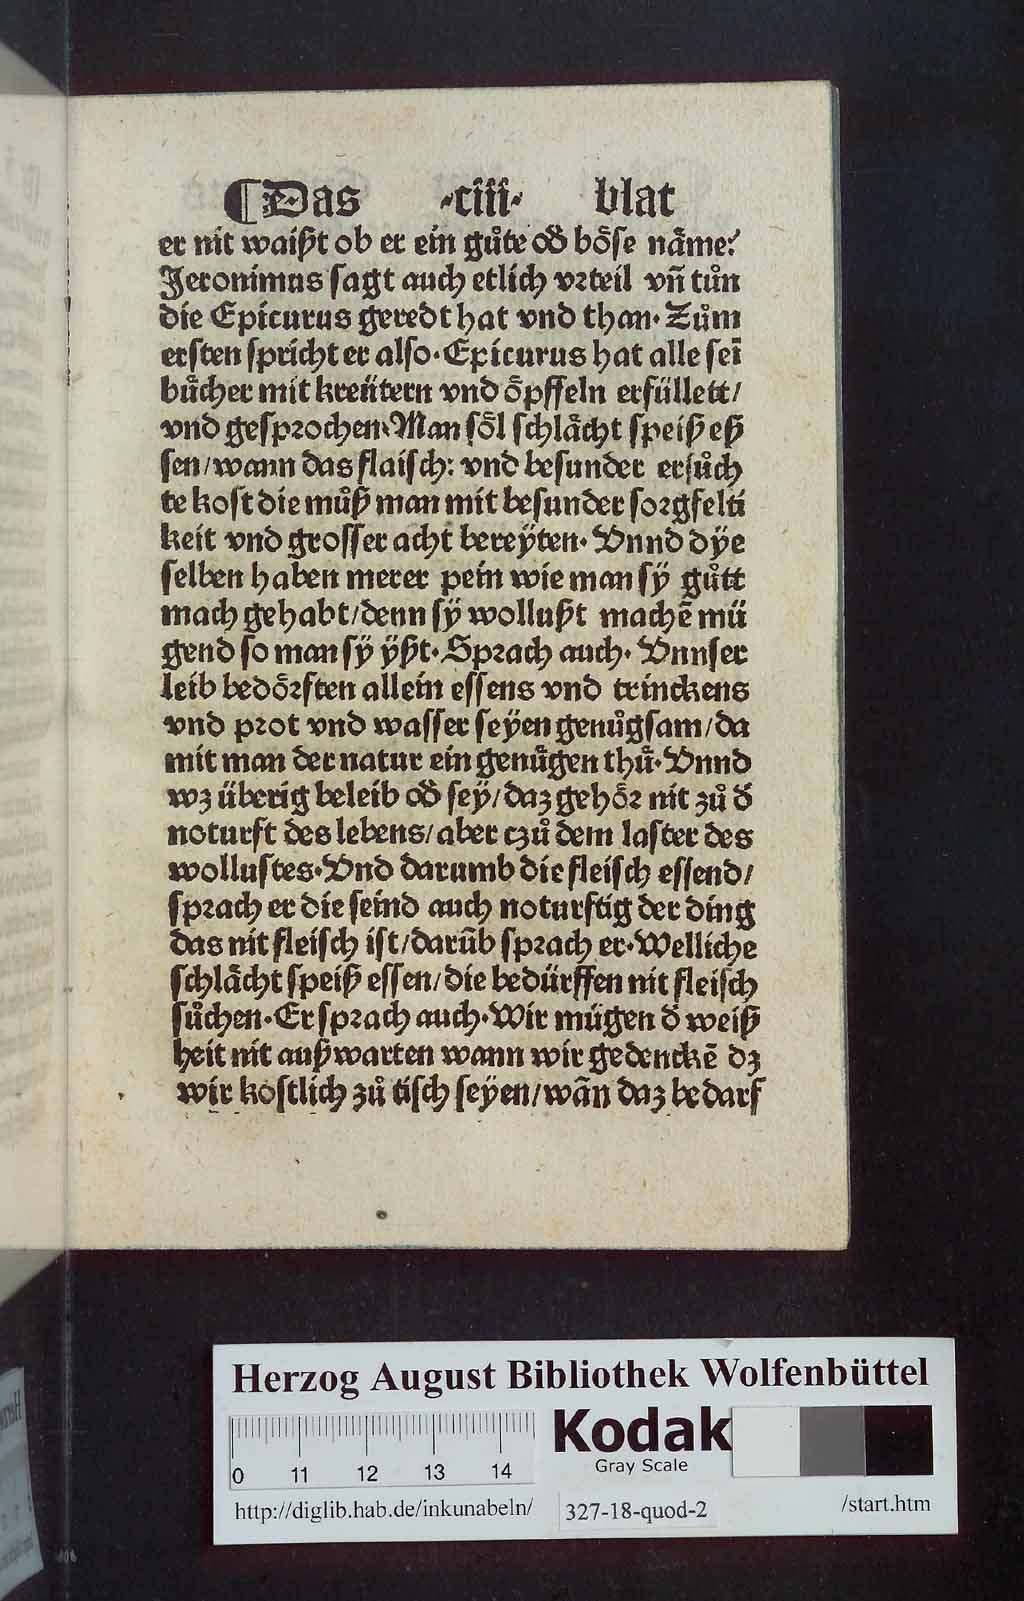 ¶Das ·ciii· blat
er nit waißt ob er ein gůte od᷑ böse näme?
Jeronimus sagt auch etlich vrteil vn̄ tůn
die Epicurus geredt hat vnd than· Zům
ersten spricht er also· Epicurus hat alle sei᷑
bůcher mit kreütern vnd öpffeln erfüllett/
vnd gesprochen· Man söl schlächt speiß eß
sen/ wann das flaisch: vnd besunder ersůch
te kost die můß man mit besunder sorgfelti
keit vnd grosser acht bereÿten· Vnnd dÿe
selben haben merer pein wie man sÿ gůtt
mach gehabt/ denn sÿ wollußt machē mü
gend so man sÿ ÿßt· Sprach auch· Vnnser
leib bedörften allein essens vnd trinckens
vnd prot vnd wasser seÿen genůgsam/ da
mit man der natur ein genůgen thů· Vnnd
wz überig beleib od᷑ seÿ/ daz gehör nit zů d᷑
noturft des lebens/ aber czů dem laster des
wollustes· Vnd darumb die fleisch essend/
sprach er die seind auch noturftig der ding
das nit fleisch ist/ darūb sprach er· Welliche
schlächt speiß essen/ die bedürffen nit fleisch
sůchen· Er sprach auch· Wir mügen d᷑ weiß
heit nit außwarten wann wir gedenckē dz
wir kostlich zů tisch seÿen/ wān daz bedarf
Herzog August Bibliothek Wolfenbüttel
0 11 12 13 14
Kodak
Gray Scale
http://diglib.hab.de/inkunabeln/ 327-18-quod-2 /start.htm